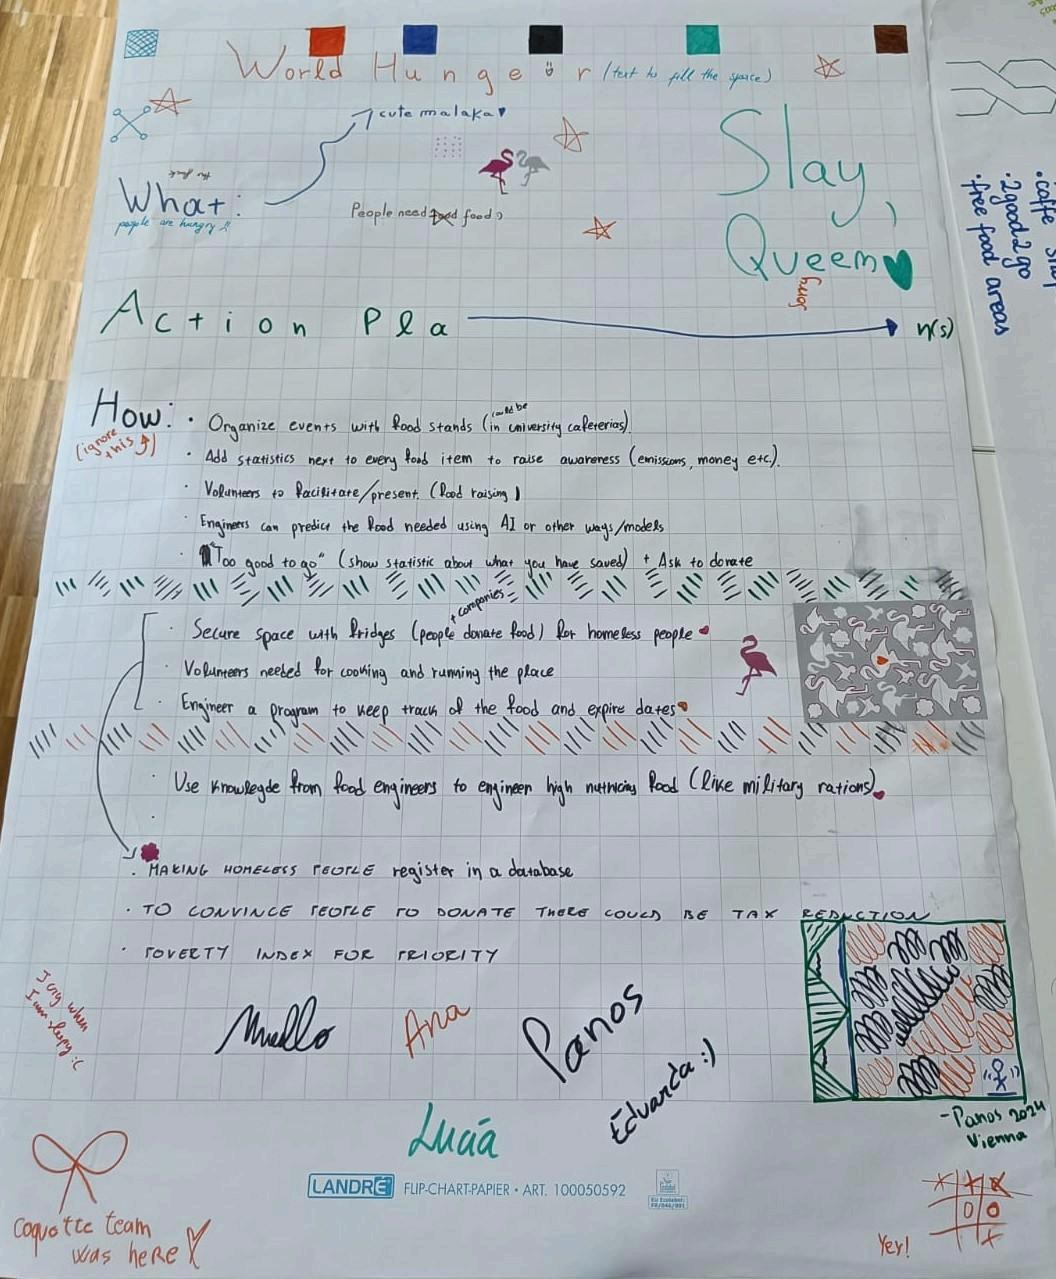 World Hunger (text to fill the space)
cute malaka
Slay,
Queem
hevor
What:
people are hungry !!
People need food food :)
Action Pla n(s)
How:
(ignore this)
• Organize events with food stands (could be in university cafeterias).
• Add statistics next to every food item to raise awareness (emissions, money etc).
• Volunteers to facilitate/present. (food raising)
• Engineers can predict the food needed using AI or other ways/models
• "Too good to go" (show statistic about what you have saved) + Ask to donate
• Secure space with fridges (people + companies donate food) for homeless people
• Volunteers needed for cooking and running the place
• Engineer a program to keep track of the food and expire dates
• Use knowlegde from food engineers to engineer high nutricius food (like military rations)
• MAKING HOMELESS PEOPLE register in a database
• TO CONVINCE PEOPLE TO DONATE THERE COULD BE TAX REDUCTION
• POVERTY INDEX FOR PRIORITY
I cry when
I am sleepy :(
Ana
Panos
Eduarda :)
Lucía
- Panos 2024
Vienna
LANDRÉ FLIP-CHART-PAPIER • ART. 100050592
EU Ecolabel:
FR/046/001
Coquette team
was here
Yey!
X X X
O O
X
• caffe
• 2good2go
• free food areas